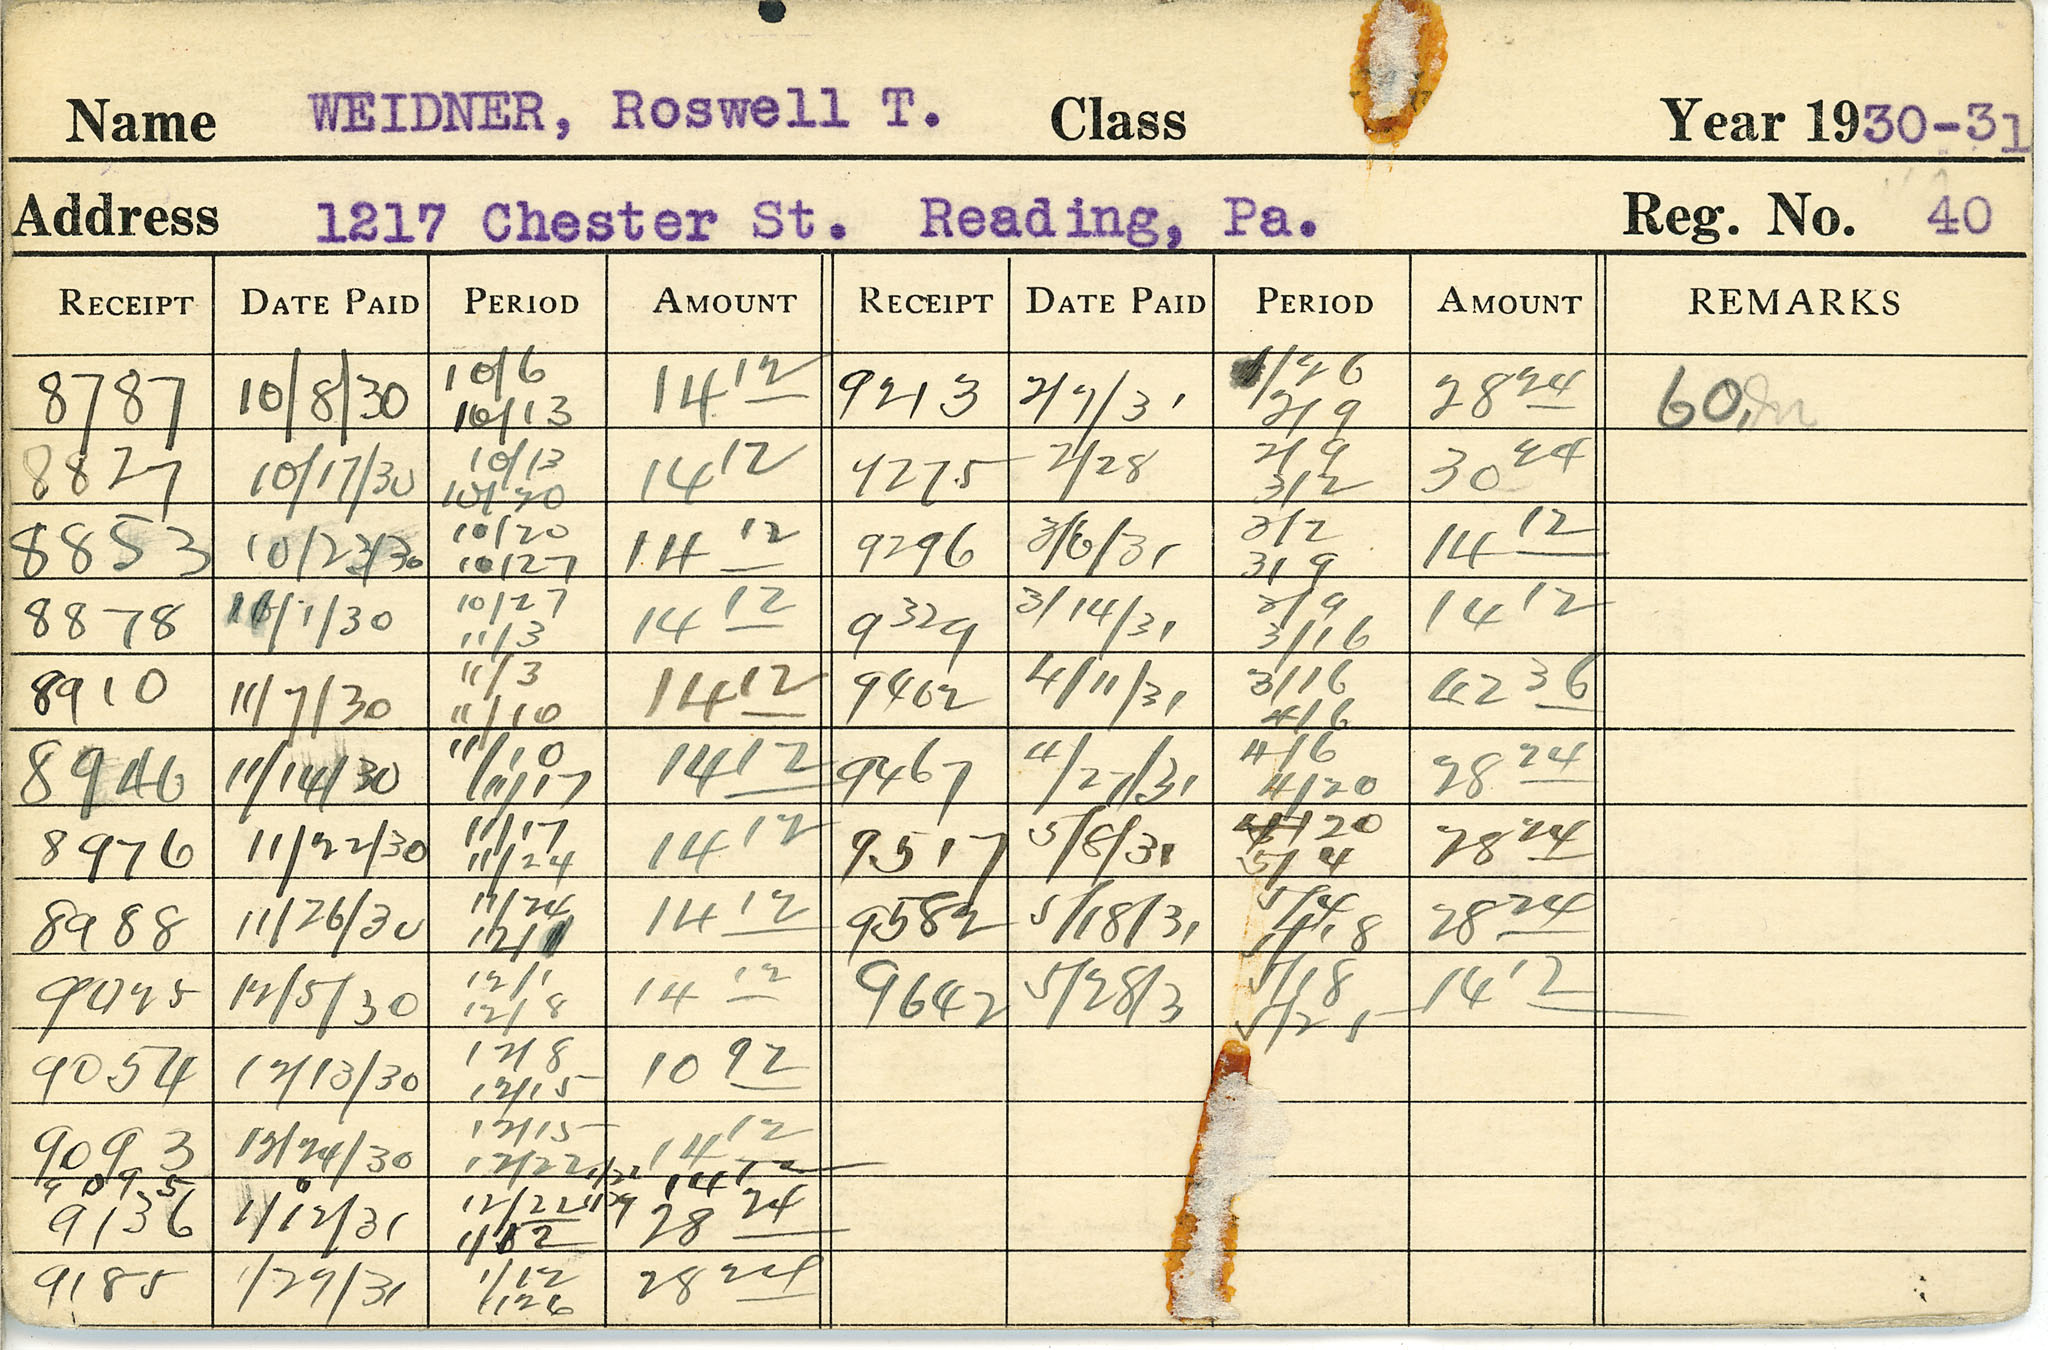 Name WEIDNER, Roswell T. Class Year 1930-31
Address 1217 Chester St. Reading, Pa. Reg. No. 40
RECEIPT DATE PAID PERIOD AMOUNT RECEIPT DATE PAID PERIOD AMOUNT REMARKS
8787 10/8/30 10/6 10/13 14 12 9213 2/7/31 1/26 2/9 28 24 60.
8827 10/17/30 10/13 10/20 14 12 9275 2/28 2/9 3/2 30 24
8853 10/23/30 10/20 10/27 14 12 9296 3/6/31 3/2 3/9 14 12
8878 11/1/30 10/27 11/3 14 12 9329 3/14/31 3/9 3/16 14 12
8910 11/7/30 11/3 11/10 14 12 9402 4/11/31 3/16 4/6 42 36
8946 11/14/30 11/10 11/17 14 12 9467 4/27/31 4/6 4/20 28 24
8976 11/22/30 11/17 11/24 14 12 9517 5/8/31 4/20 5/4 28 24
8988 11/26/30 11/24 12/1 14 12 9582 5/18/31 5/4 5/18 28 24
9025 12/5/30 12/1 12/8 14 12 9642 5/28/3 5/18 5/25 14 12
9054 12/13/30 12/8 12/15 10 92
9093 12/24/30 12/15 12/22 14 12
9095 14 12
9136 1/12/31 12/22 1/12 28 24
9185 1/29/31 1/12 1/26 28 24